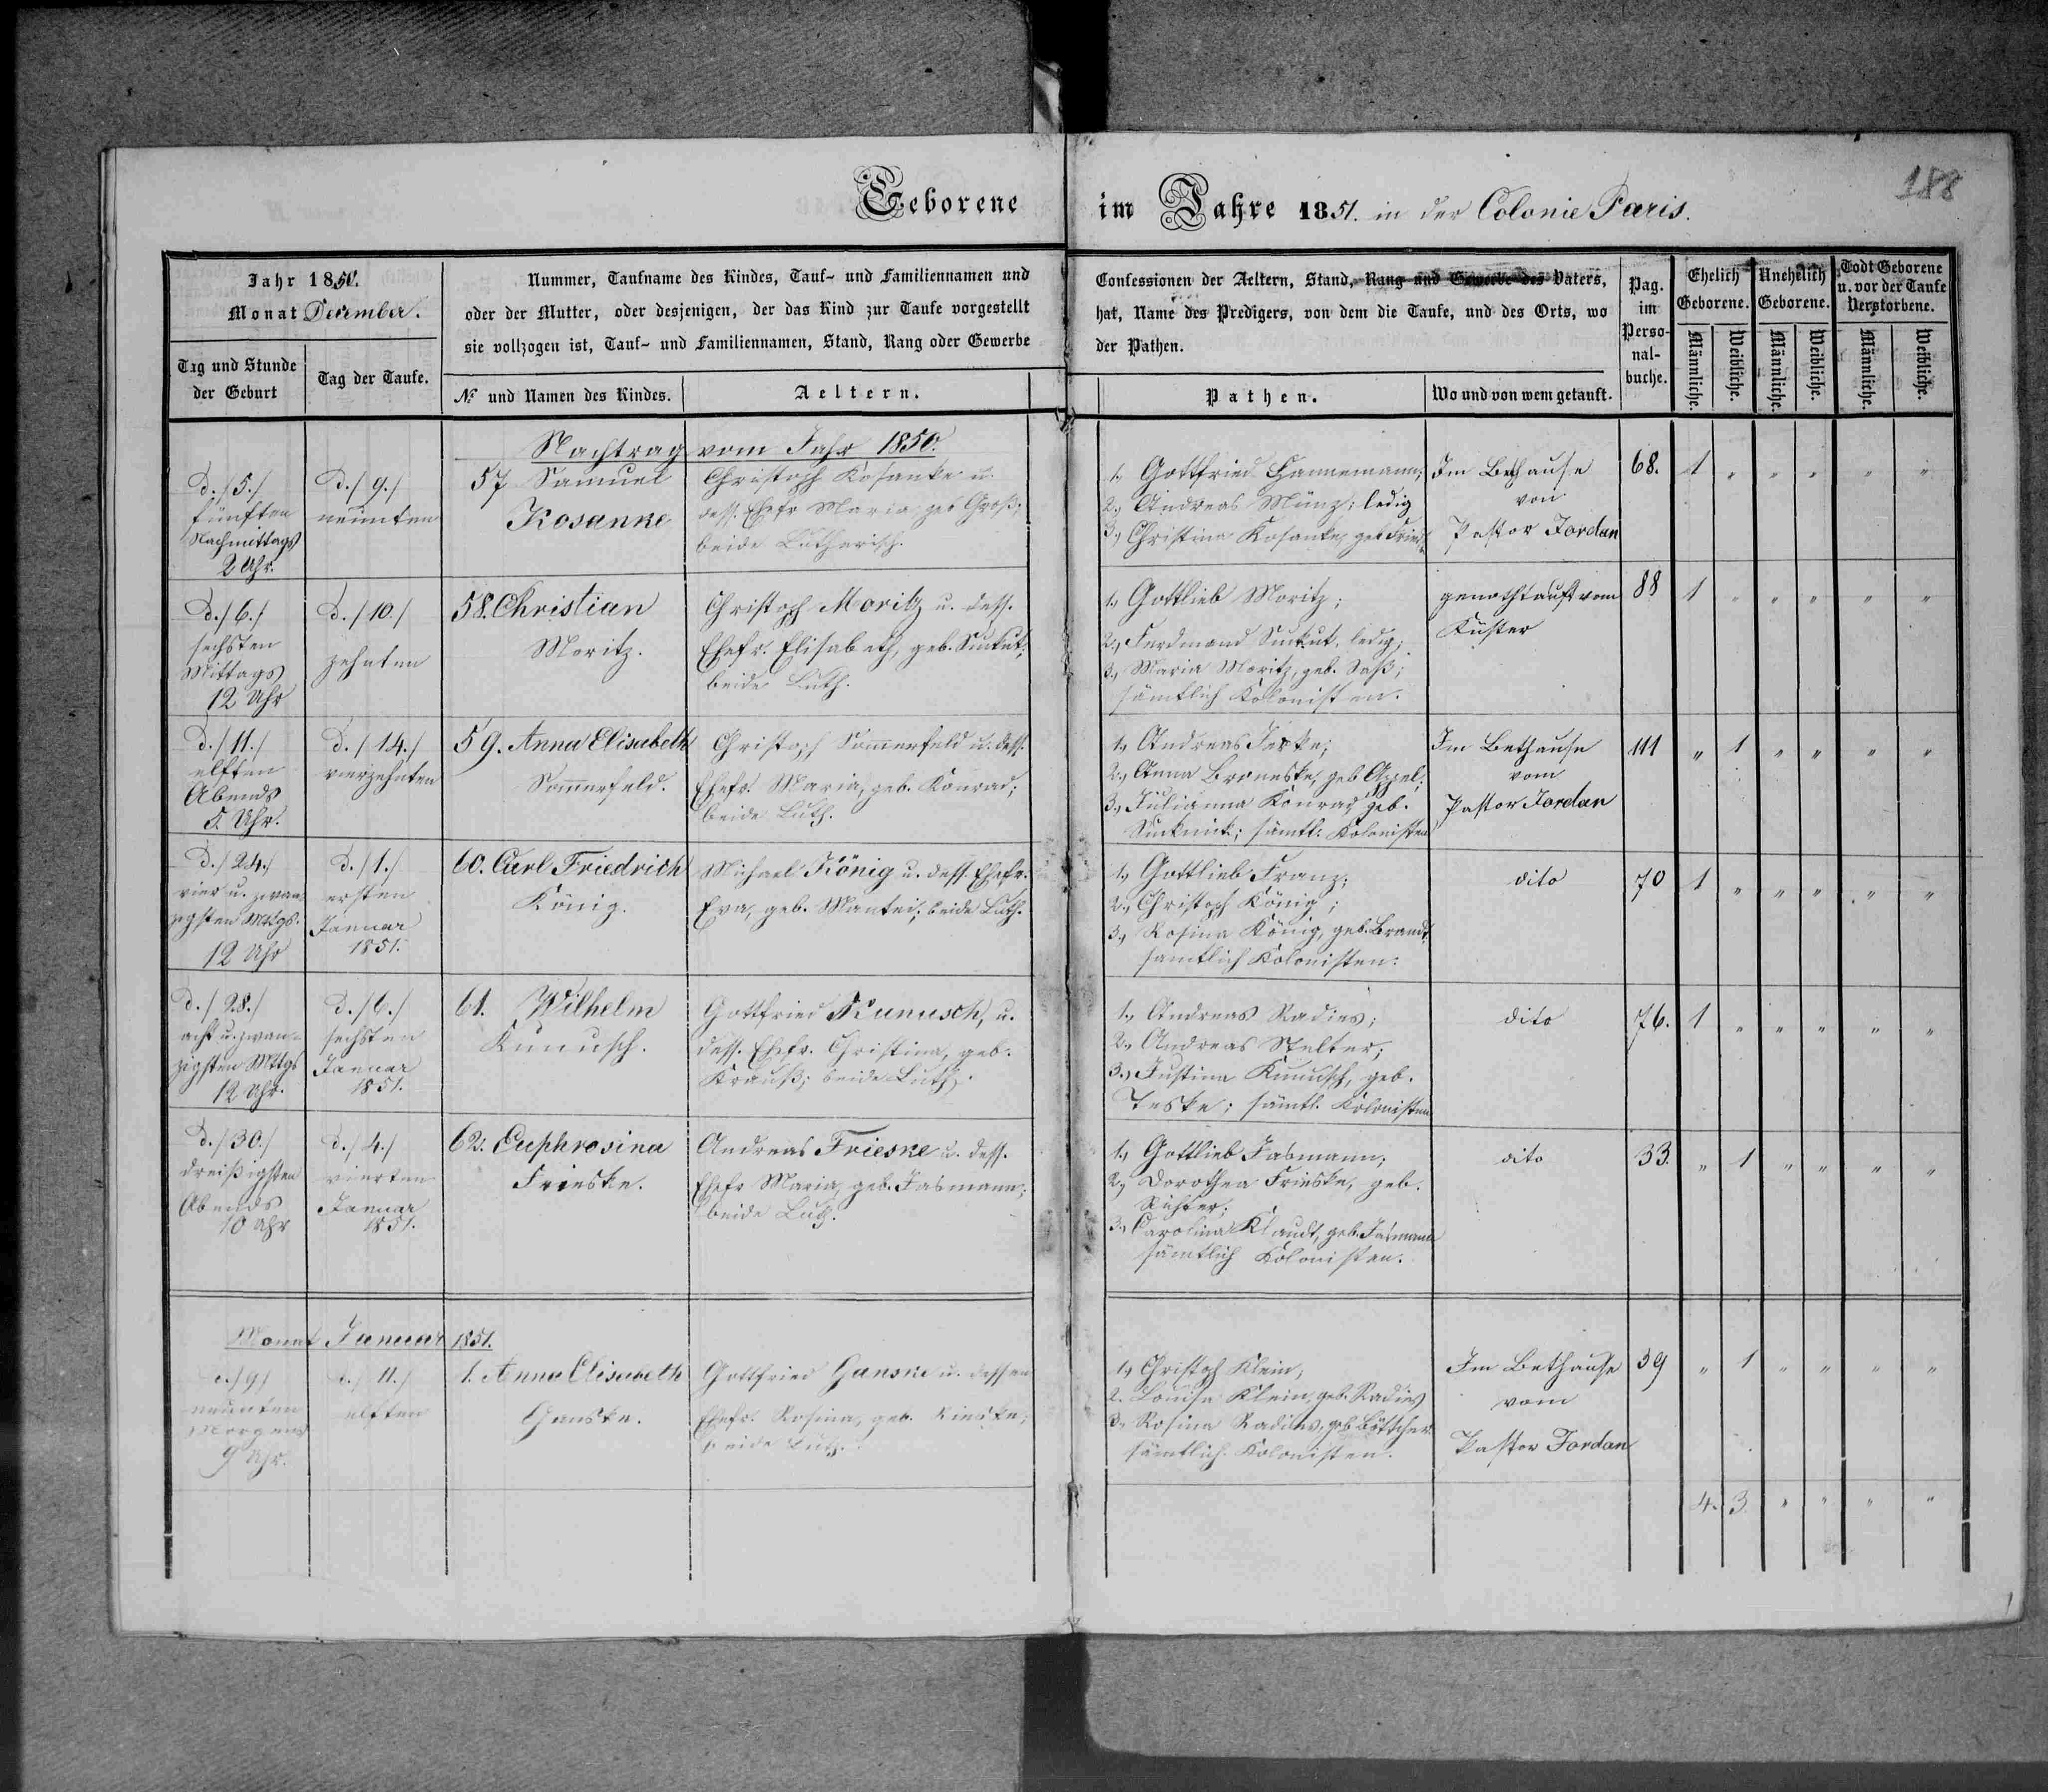 188
Geborene im Jahre 1851. in der Colonie Paris.
Jahr 1850.
Monat December.
Nummer, Taufname des Kindes, Tauf- und Familiennamen und
oder der Mutter, oder desjenigen, der das Kind zur Taufe vorgestellt
sie vollzogen ist, Tauf- und Familiennamen, Stand, Rang oder Gewerbe
Confessionen der Aeltern, Stand, Rang und Gewerbe des Vaters,
hat, Name des Predigers, von dem die Taufe, und des Orts, wo
der Pathen.
Tag und Stunde
der Geburt
Tag der Taufe.
№ und Namen des Kindes.
Aeltern.
Pathen.
Wo und von wem getauft.
Pag.
im
Perso-
nal-
buche.
Ehelich
Geborene.
Unehelich
Geborene.
Todt Geborene
u. vor der Taufe
Verstorbene.
Männliche.
Weibliche.
Männliche.
Weibliche.
Männliche.
Weibliche.
Nachtrag vom Jahr 1850.
d./5./
fünften
Nachmittags
2 Uhr.
d./9./
neunten
57 Samuel
Kosanke
Christoph Kosanke u.
dess. Ehefr Maria geb Groß;
beide Lutharisch.
1. Gottfried Hannemann;
2., Andreas Münz; ledig
3., Christina Kosanke, geb
Im Bethause
von
Pastor Jordan
68. 1 " " " " "
d./6./
sechsten
Mittags
12 Uhr
d./10./
zehnten
58. Christian
Moritz.
Christoph Moritz u. dess.
Ehefr. Elisabeth, geb.
beide Luth.
1., Gottlieb Moritz;
2., Ferdinand ledig;
3., Maria Moritz, geb. Saß;
sämtlich Kolonisten.
genothtauft vom
Küster
88 1 " " " " "
d./11./
elften
Abends
5. Uhr.
d./14./
vierzehnten
59. Anna Elisabeth
Sommerfeld.
Christoph Sommerfeld u. dess.
Ehefr. Maria, geb. Konrad;
beide Luth.
1., Andreas Jeske;
2., Anna Broneske, geb Appel;
3., Julianna Konrad geb.
sämtl. Kolonisten
Im Bethause
vom
Pastor Jordan
111 " 1 " " " "
d./24./
vier u. zwan-
zigsten Mttgs.
12 Uhr
d./1./
ersten
Januar
1851.
60. Carl Friedrich
König.
Michael König u. dess. Ehefr.
Eva, geb. Mantei; beide Luth.
1., Gottlieb Franz;
2., Christoph König;
3., Rosina König, geb. Brandt
samtlich Kolonisten.
dito
70 1 " " " " "
d./28./
acht u. zwan-
zigsten Mttgs
12 Uhr.
d./6./
sechsten
Januar
1851.
61. Wilhelm
Kunusch.
Gottfried Kunusch, u.
dess. Ehefr. Christina, geb.
Krauß; beide Luth.
1., Andreas Radies;
2., Andreas Stelter;
3., Justina Kunusch, geb.
Teske; sämtl. Kolonisten
dito
76. 1 " " " " "
d./30./
dreißigsten
Abends
10 Uhr
d./4./
vierten
Januar
1851.
62. Euphrosina
Frieske.
Andreas Frieske u. dess.
Ehefr Maria, geb. Fasmann;
beide Luth.
1., Gottlieb Fasmann;
2., Dorothea Frieske, geb.
Richter;
3., Carolina Klaudt, geb. Fasmann
sämtlich Kolonisten.
dito
33. " 1 " " " "
Monat Januar 1851.
d./9/
neunten
Morgens
9 Uhr.
d./11./
elften
1. Anna Elisabeth
Ganske.
Gottfried Ganske u. dessen
Ehefr. Rosina, geb. Rieske;
beide Luth.
1., Christoph Klein,
2. Louisa Klein, geb. Radies
3., Rosina Radies, geb Böttcher
sämtlich Kolonisten.
Im Bethause
vom
Pastor Jordan
39 " 1 " " " "
4. 3. " " " "